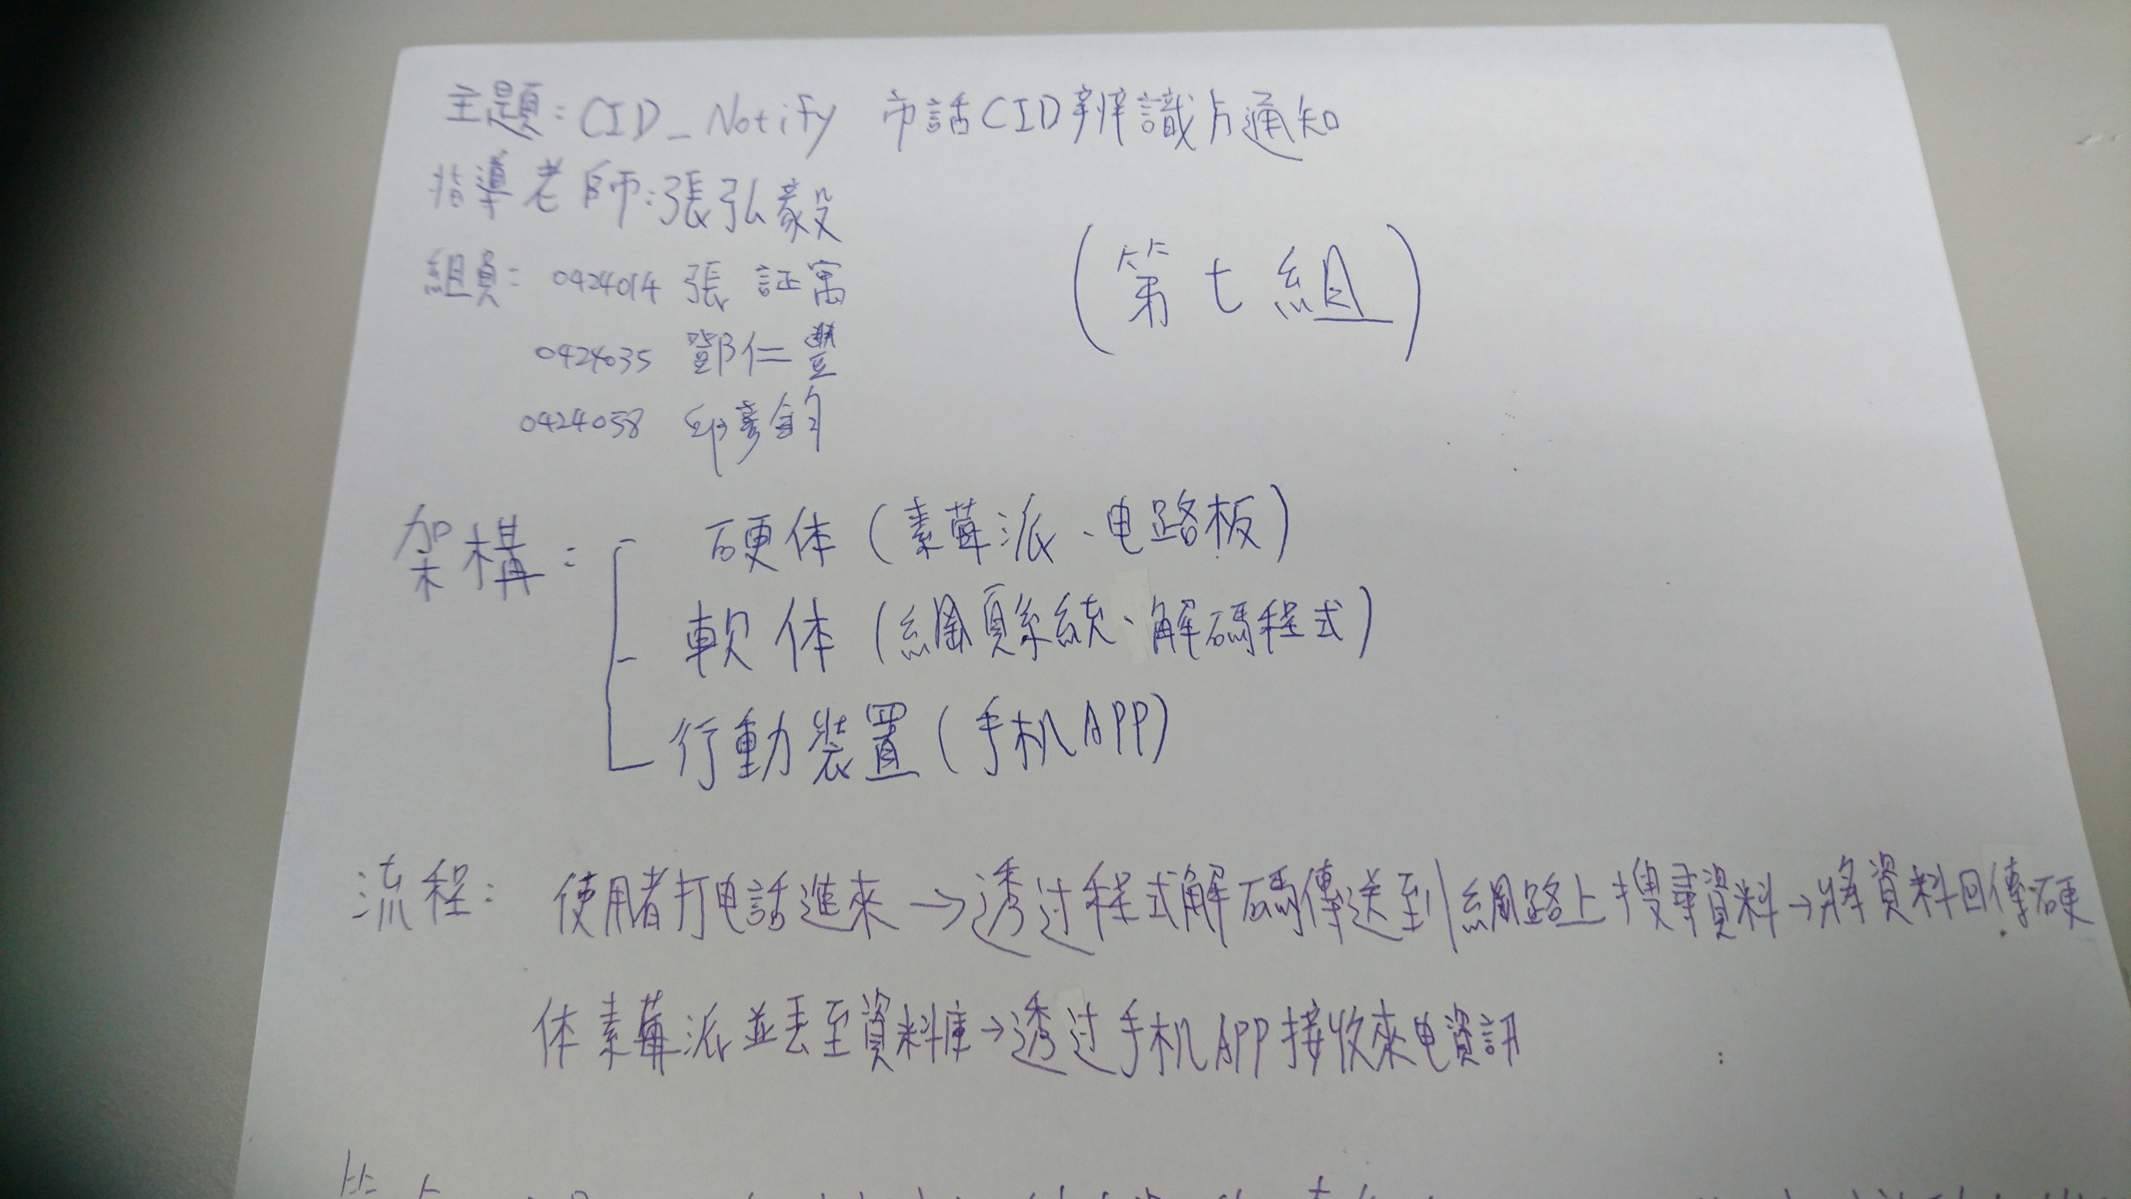 主題：CID_Notify 市話CID辨識与通知
指導老師：張弘毅
組員：0424014 張証寓
(第七組)
0424035 鄧仁豐
0424058 邱彥鈞
架構：
硬体(素莓派、电路板)
軟体(網頁系統、解碼程式)
行動裝置(手机APP)
流程：使用者打电話進來→透过程式解碼傳送到網路上搜尋資料→將資料回傳硬
体素莓派並丟至資料庫→透过手机APP接收來电資訊